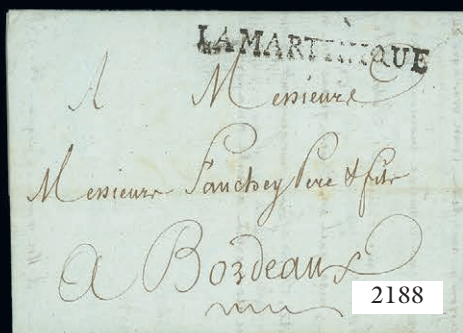 LA MARTINIQUE
A Messieurs
Messieurs Fauchey Pere & fils
a Bordeaux
2188